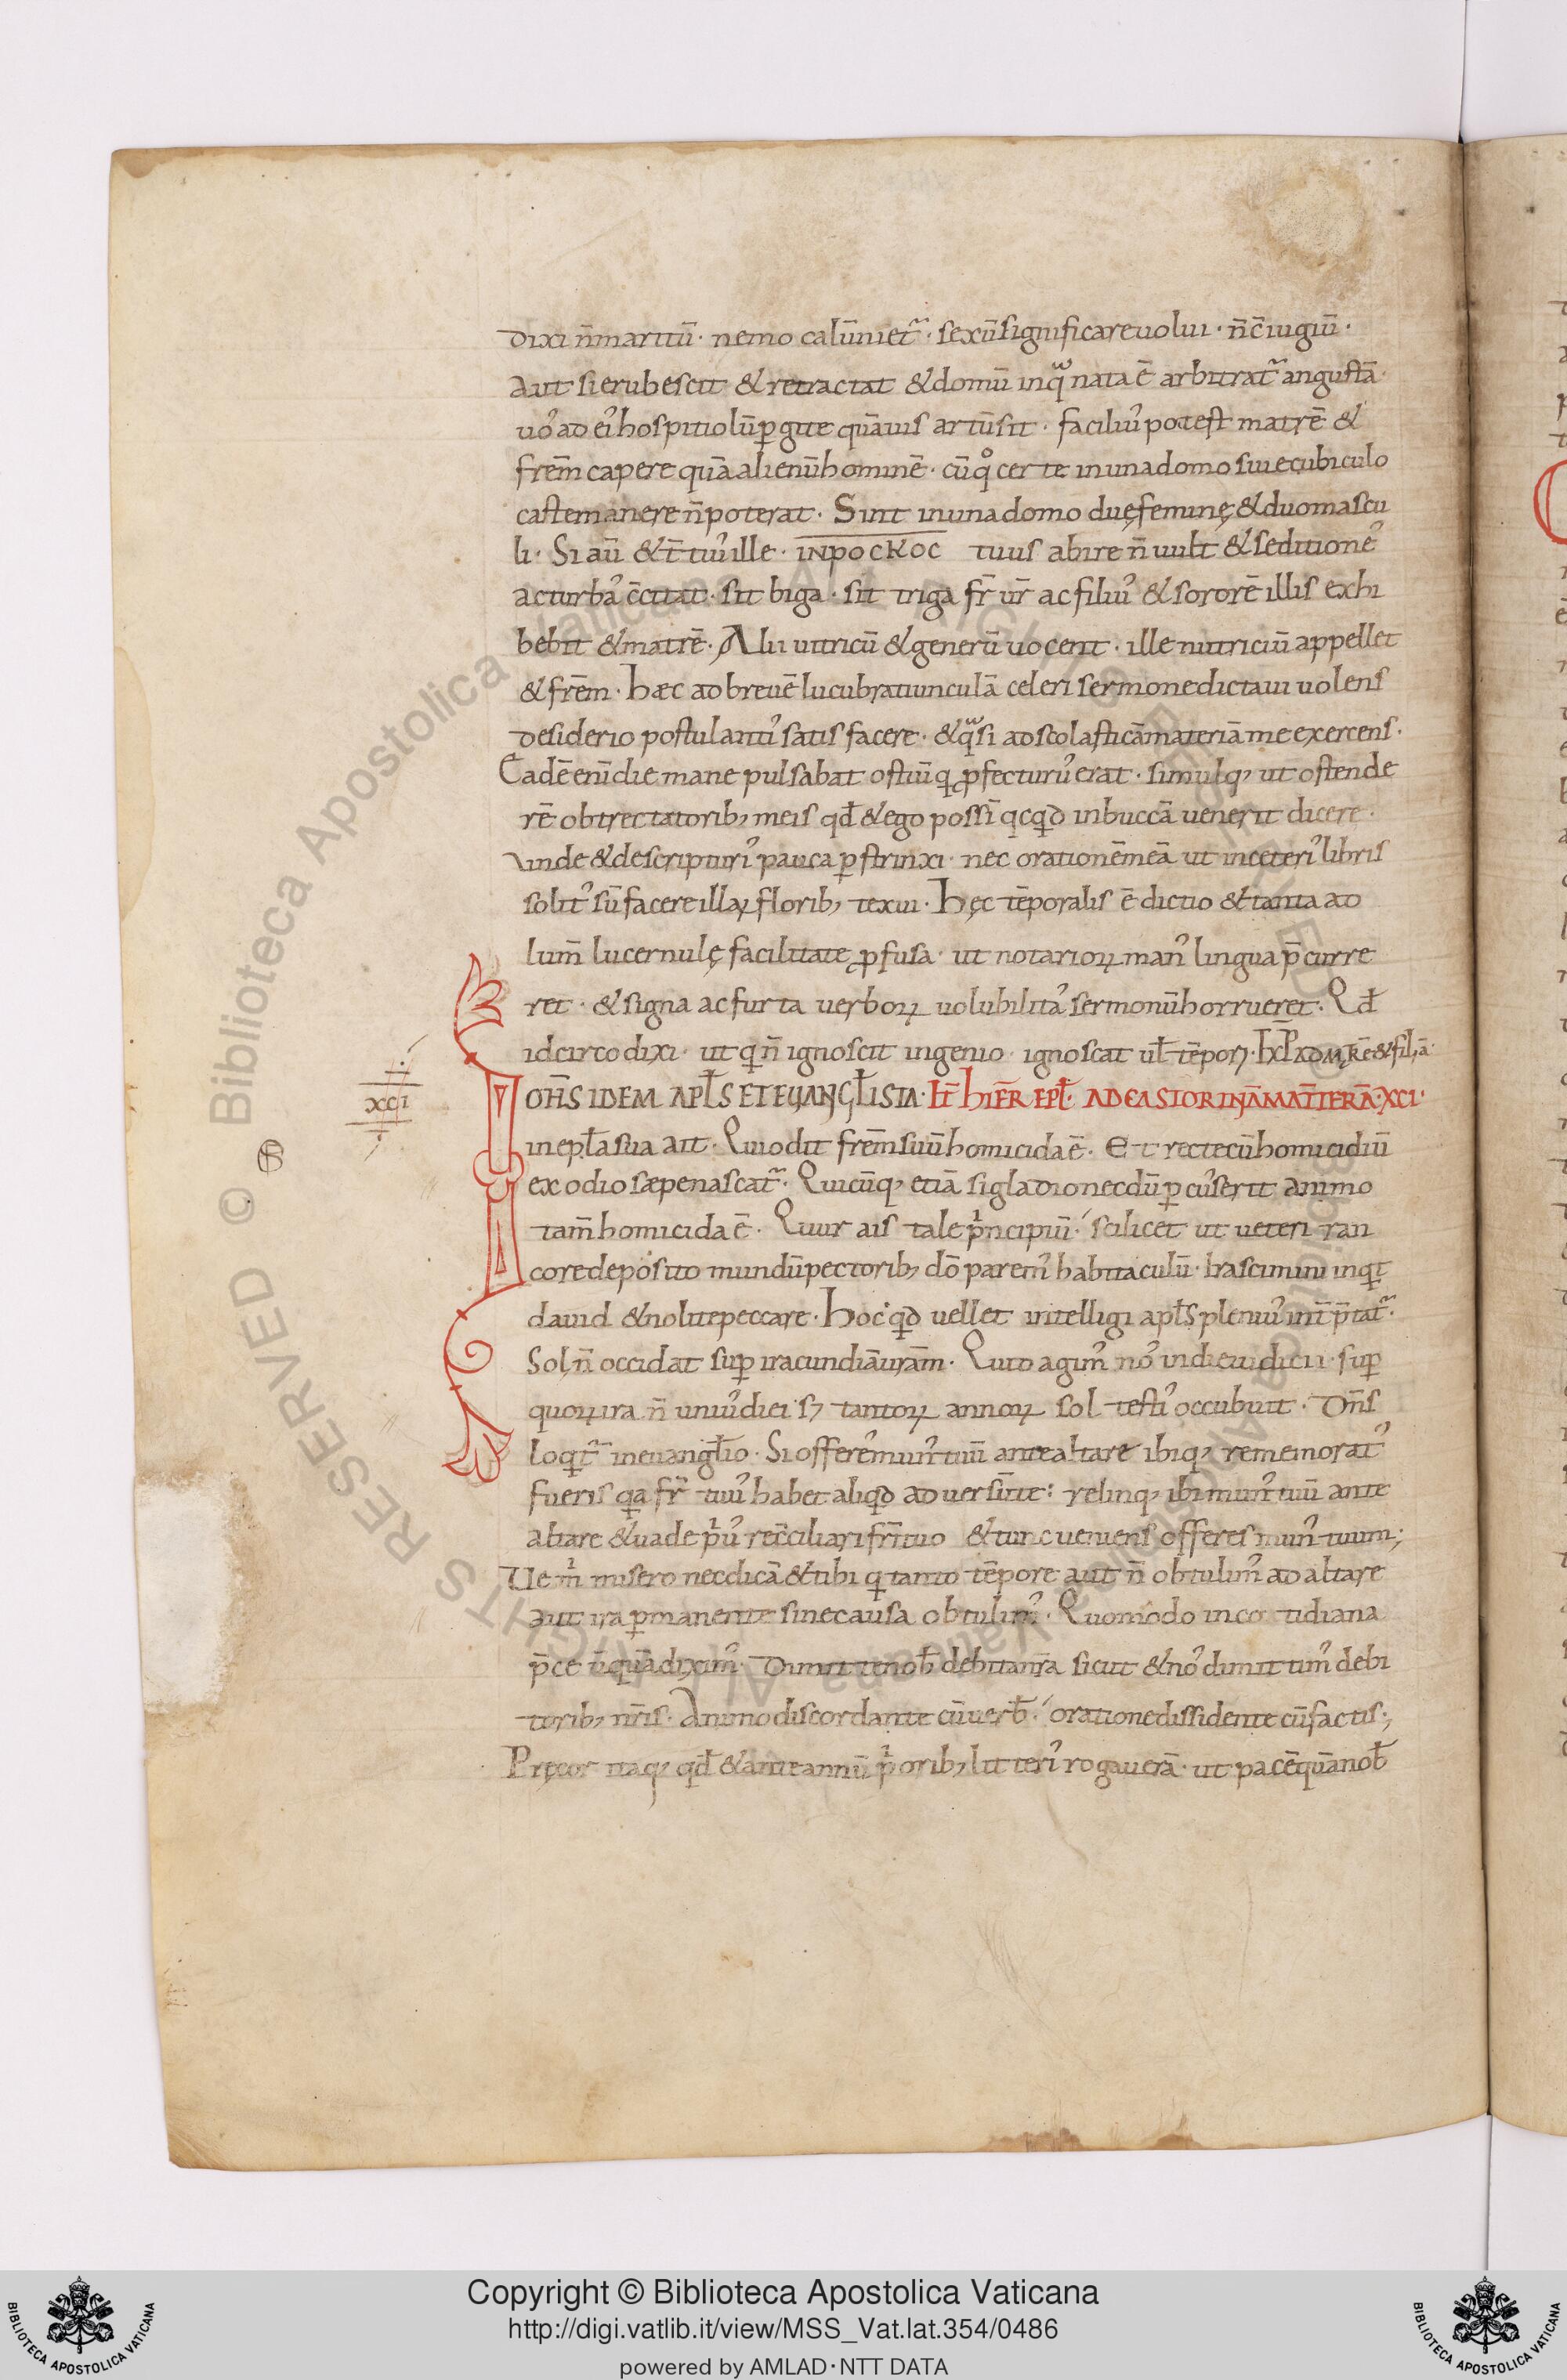 dixi n̄ maritū· nemo calūniet᷑· sexū significare uolui· n̄ c̄iugiū·
Aut si erubescit & retractat & domū in qͣ nata ē arbitrat᷑ angustā·
uoꝰ ad eiꝰ hospitiolū ꝑgite quāuis artū sit· faciliuꝰ potest matrē &
frēm capere quā alienū hominē· cū qͦ certe in una domo siue cubiculo
caste manere n̄ poterat· Sint in una domo duę feminę & duo mascu
li· Si aū & t̄tiuꝰ ille· ΙΝΡΟϹΚΟϹ tuus abire n̄ uult & seditioneꝰ
ac turbaꝰ c̄citat· sit biga· sit triga fr̄ ur̄ ac filiuꝰ & sororē illis exhi
bebit & matrē· Alii uitricū & generū uocent· ille nutriciū appellet
& frēm· Hæc ad breuē lucubratiunculā celeri sermone dictaui uolens
desiderio postulantiꝰ satisfacere· & qͣsi ad scolasticā materiā me exercens·
Eadē enī die mane pulsabat ostiū qui ꝓfecturuꝰ erat· simulq; ut ostende
rē obtrectatorib; meis qđ & ego possī qcqd in buccā uenerit dicere·
Vnde & de scripturiꝰ pauca ꝑstrinxi· nec orationē meā ut in ceteriꝰ libris
solituꝰ sū facere illaꝝ florib; texui· Hęc tēporalis ē dictio & tanta ad
lum̄ lucernulę facilitate ꝓfusa· ut notarioꝝ manꝰ lingua p̄curre
ret· & signa ac furta uerboꝝ uolubilitaꝰ sermonū horrueret· Qđ
idcirco dixi· ut q n̄ ignoscit ingenio· ignoscat uƚ tēpori· EXP̄ AD MRĒ & filiā·
IOHS IDEM APƚS ET EUANGƚISTA· IT̄ HIER̄ EPƚ· AD CASTORINĀ MAT̄TERĀ· XCI·
XCI
in epƚa sua ait· Qui odit frēm suū homicida ē· Et recte cū homicidiū
ex odio sæpe nascat᷑· Quicūq; etiā si gladio necdū ꝑcuꝰserit animo
tam̄ homicida ē· Quur ais tale pͥncipiū· scilicet ut ueteri ran
core deposito mundū pectorib; dō paremꝰ habitaculū· Irascimini inqͥt
dauid & nolite peccare· Hoc qd uellet intelligi apƚs pleniuꝰ int̄p̄tat᷑·
Sol n̄ occidat suꝑ iracundiā urām· Quid agimꝰ noꝰ in die iudicii· suꝑ
quoꝝ ira n̄ uniuꝰ diei s; tantoꝝ annoꝝ sol testiꝰ occubuit· Dn̄s
loqͥt᷑ in euangƚio· Si offereꝰ munꝰ tuū ante altare ibiq; rememoratꝰ
fueris qa fr̄ tuuꝰ habet aliqd aduersūte: relinq; ibi munꝰ tuū ante
altare & uade pͥuꝰ rec̄ciliari fr̄i tuo & tunc ueniens offeres munꝰ tuum;
Ue mͥ misero nec dicā & tibi q tanto tēpore aut n̄ obtulimꝰ ad altare
aut ira ꝑmanente sine causa obtulimꝰ· Quomodo in cotidiana
p̄ce ūquā diximꝰ· Dimitte nob̄ debita nr̄a sicut & noꝰ dimittimꝰ debi
torib; nr̄is· Animo discordante cū uerƀ· oratione dissidente cū factis·,
Pręcor itaq; qđ & ante annū pͥorib; litteriꝰ rogauerā· ut pacē quā nob̄
Copyright © Biblioteca Apostolica Vaticana
http://digi.vatlib.it/view/MSS_Vat.lat.354/0486
powered by AMLAD·NTT DATA
BIBLIOTECA APOSTOLICA VATICANA
BIBLIOTECA APOSTOLICA VATICANA